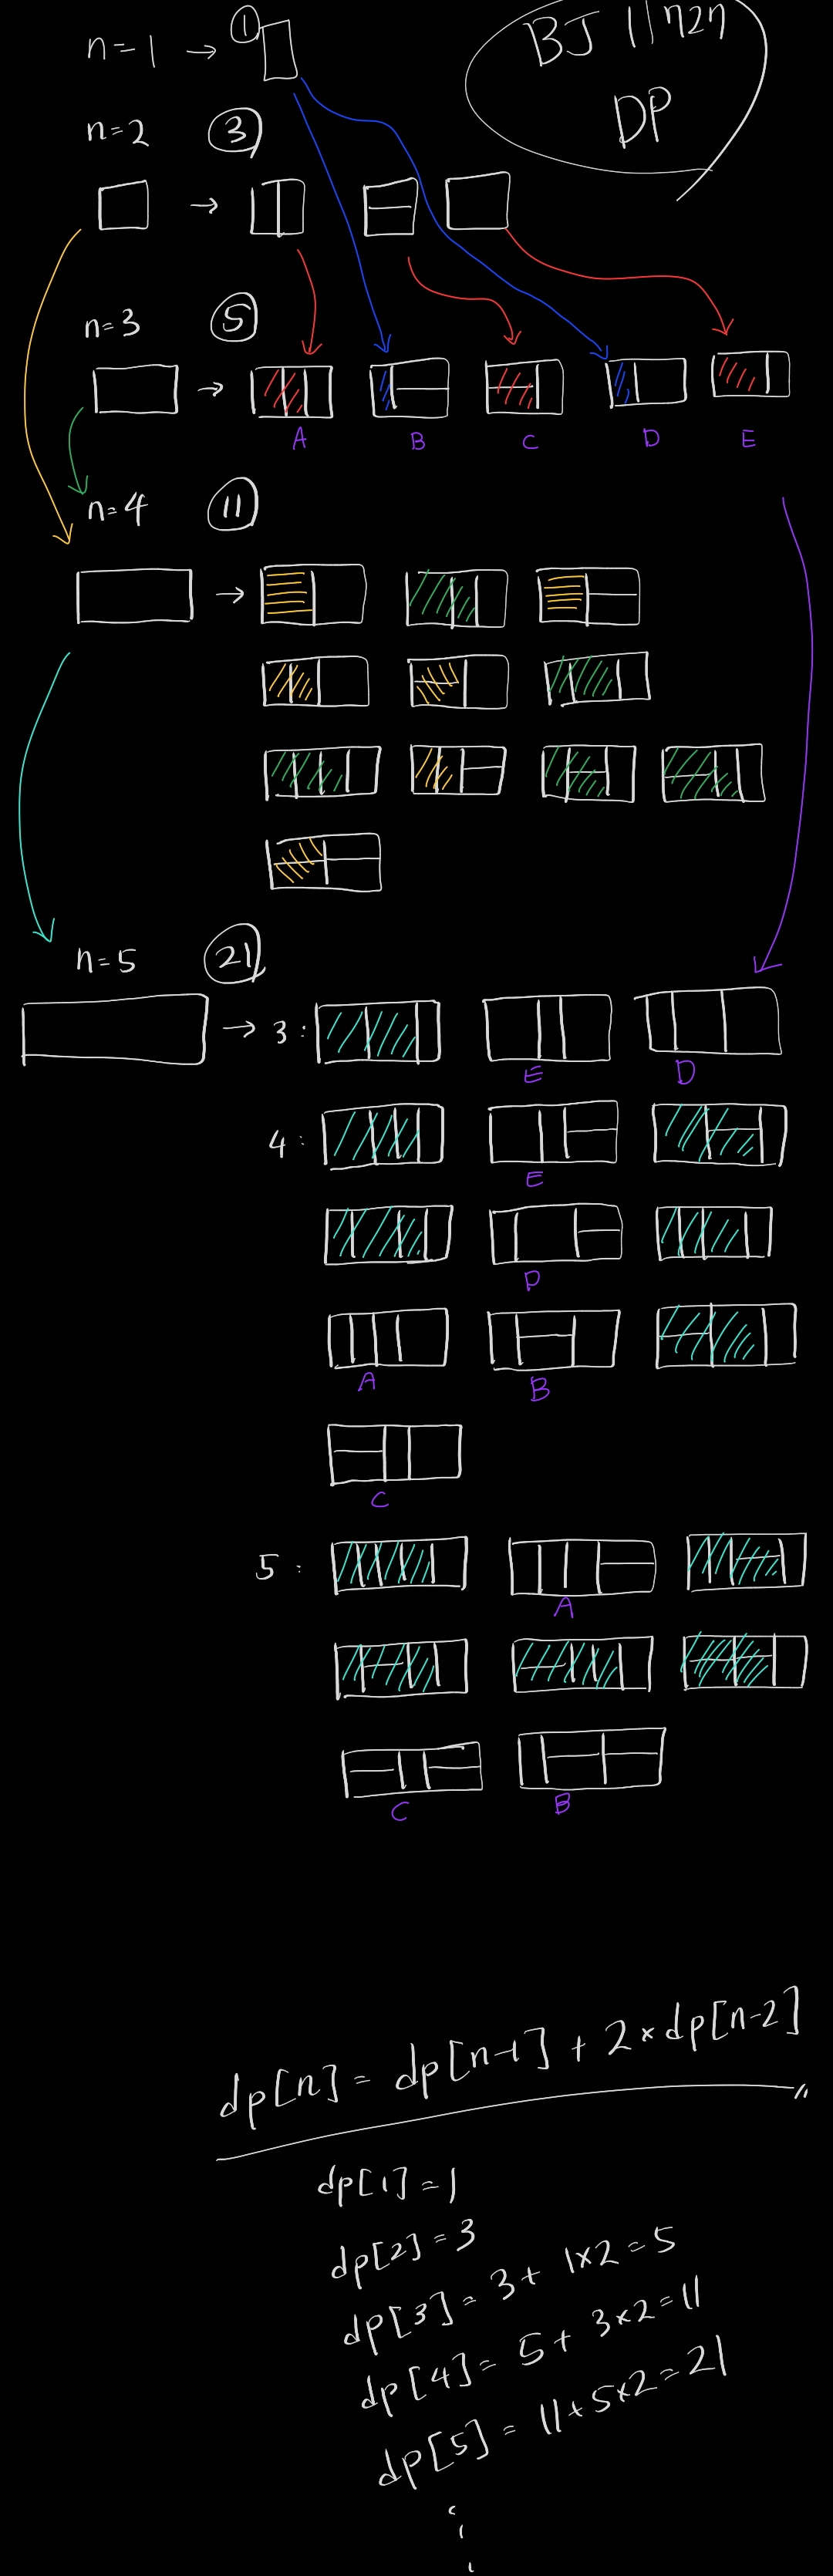 n=1 → ①
BJ 11727
DP
n=2 ③
→
n=3 ⑤
→
A B C D E
n=4 ⑪
→
n=5 ㉑
→ 3:
E D
4:
E
D
A B
C
5:
A
C B
dp[n] = dp[n-1] + 2×dp[n-2]
dp[1]=1
dp[2]=3
dp[3]=3+ 1×2=5
dp[4]= 5+ 3×2=11
dp[5]= 11+5×2=21